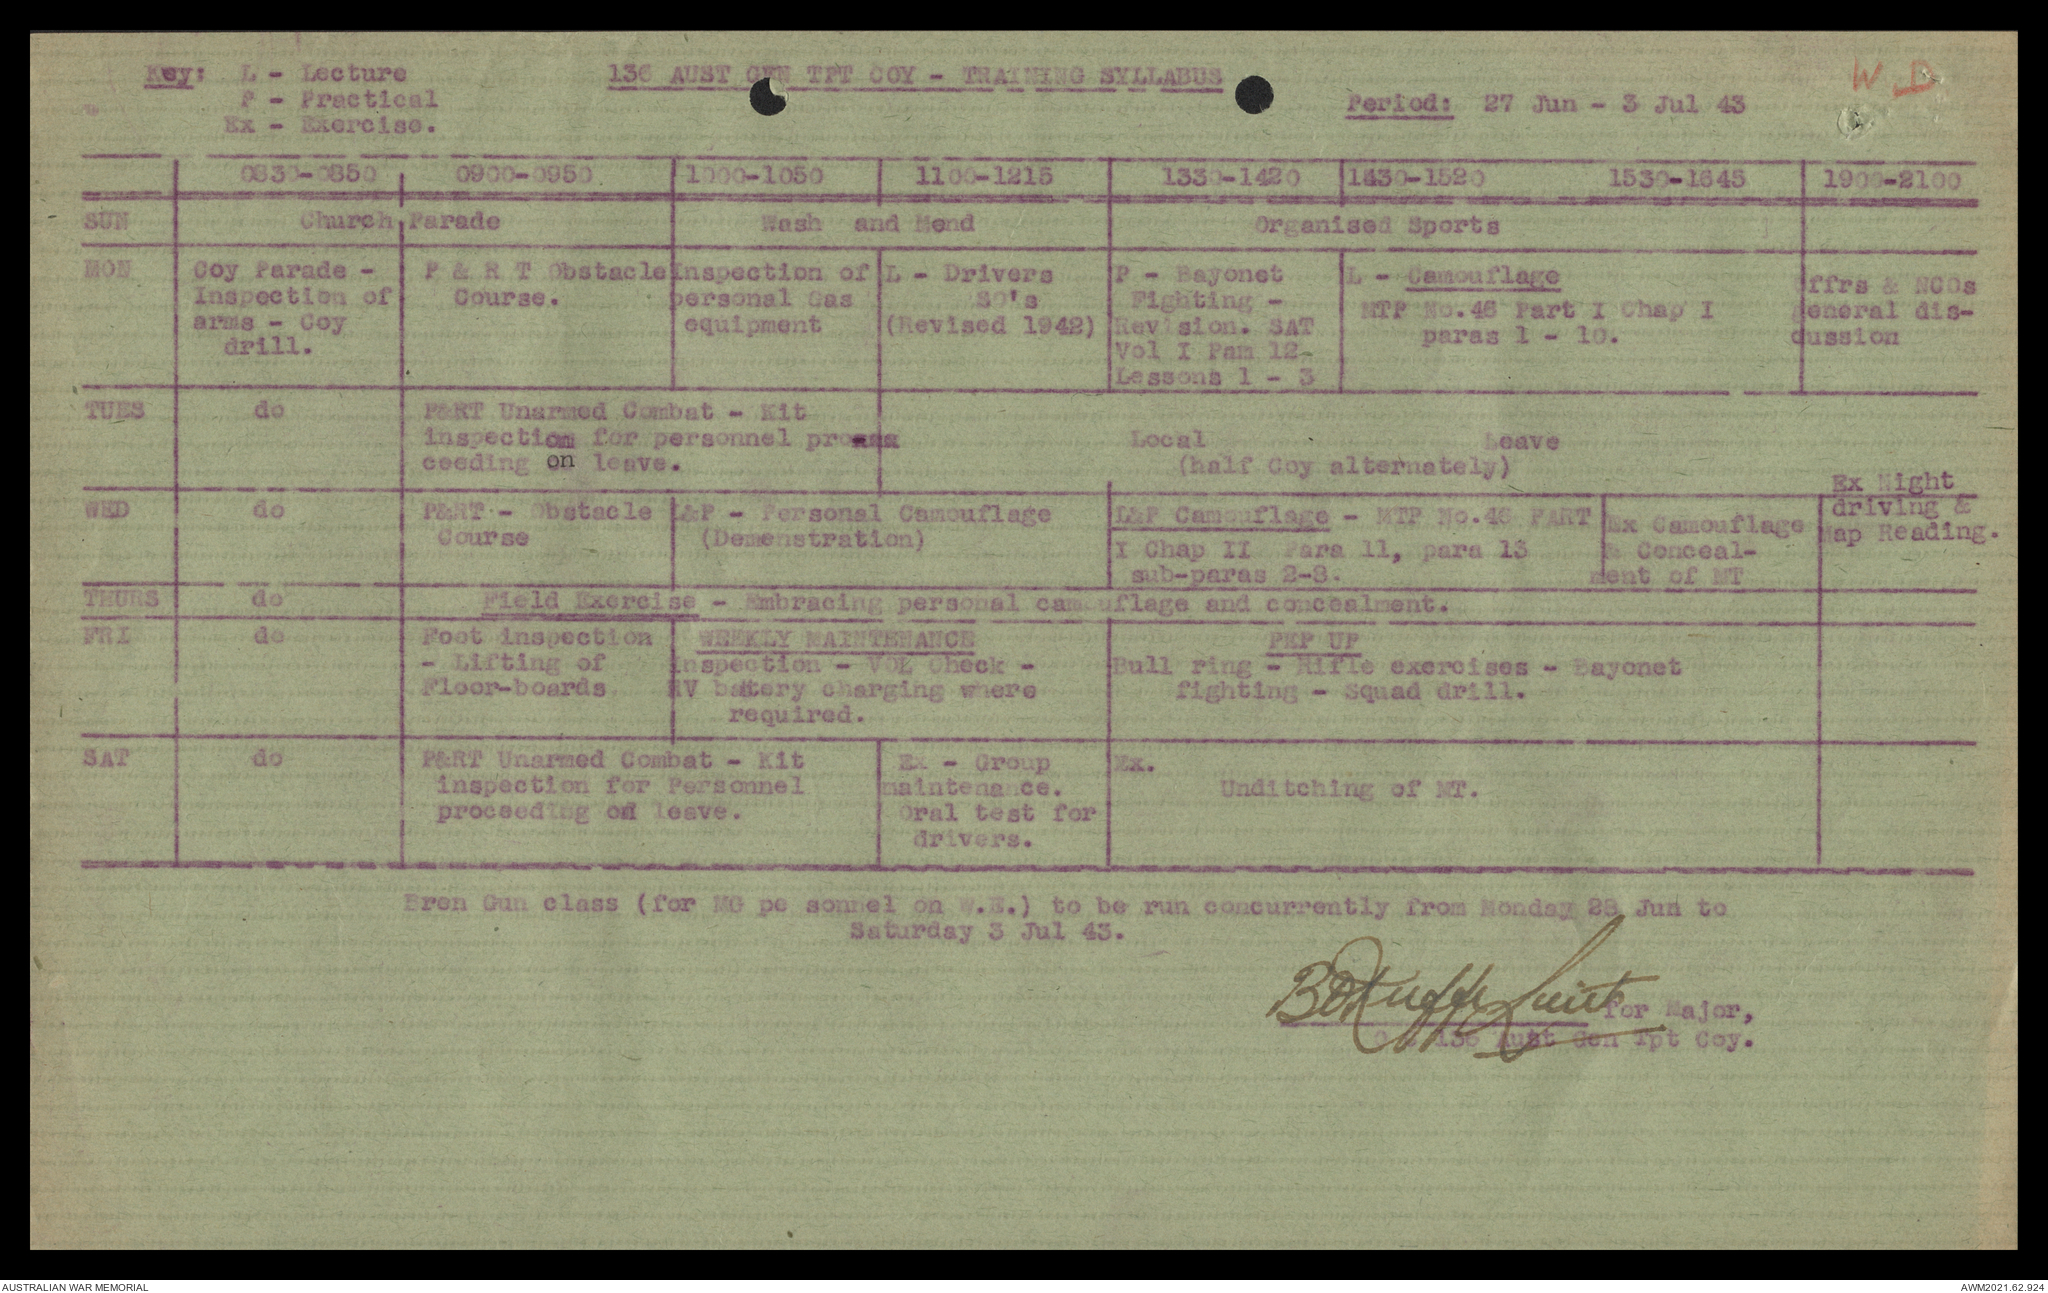 Key: L - Lecture
P - Practical
Ex - Exercise.
136 AUST GEN TPT COY - TRAINING SYLLABUS
Period: 27 Jun - 3 Jul 43
W.D
0830-0850 0900-0950 1000-1050 1100-1215 1330-1420 1430-1520 1530-1645 1900-2100
SUN Church Parade Wash and Mend Organised Sports
MON
Coy Parade -
Inspection of
arms - Coy
drill.
P & R T Obstacle
Course.
Inspection of
personal Gas
equipment
L - Drivers
SO's
(Revised 1942)
P - Bayonet
Fighting -
Revision. SAT
Vol I Pam 12
Lessons 1 - 3
L - Camouflage
MTP No.46 Part I Chap I
paras 1 - 10.
Offrs & NCOs
general dis-
cussion
TUES do
P&RT Unarmed Combat - Kit
inspection for personnel pro
ceeding on leave.
Local Leave
(half Coy alternately)
WED do
P&RT - Obstacle
Course
L&P - Personal Camouflage
(Demenstration)
L&P Camouflage - MTP No.46 PART
I Chap II Para 11, para 13
sub-paras 2-8.
Ex Camouflage
& Conceal-
ment of MT
Ex Night
driving &
Map Reading.
THURS do Field Exercise - Embracing personal camouflage and concealment.
FRI do
Foot inspection
- Lifting of
Floor-boards
WEEKLY MAINTENANCE
Inspection - VOL Check -
RV battery charging where
required.
PEP UP
Bull ring - Rifle exercises - Bayonet
fighting - Squad drill.
SAT do
P&RT Unarmed Combat - Kit
inspection for Personnel
proceeding on leave.
Ex - Group
maintenance.
Oral test for
drivers.
Ex.
Unditching of MT.
Bren Gun class (for MG pe sonnel on W.E.) to be run concurrently from Monday 28 Jun to
Saturday 3 Jul 43.
Lieut for Major,
136 Aust Gen Tpt Coy.
AUSTRALIAN WAR MEMORIAL
AWM2021.62.924